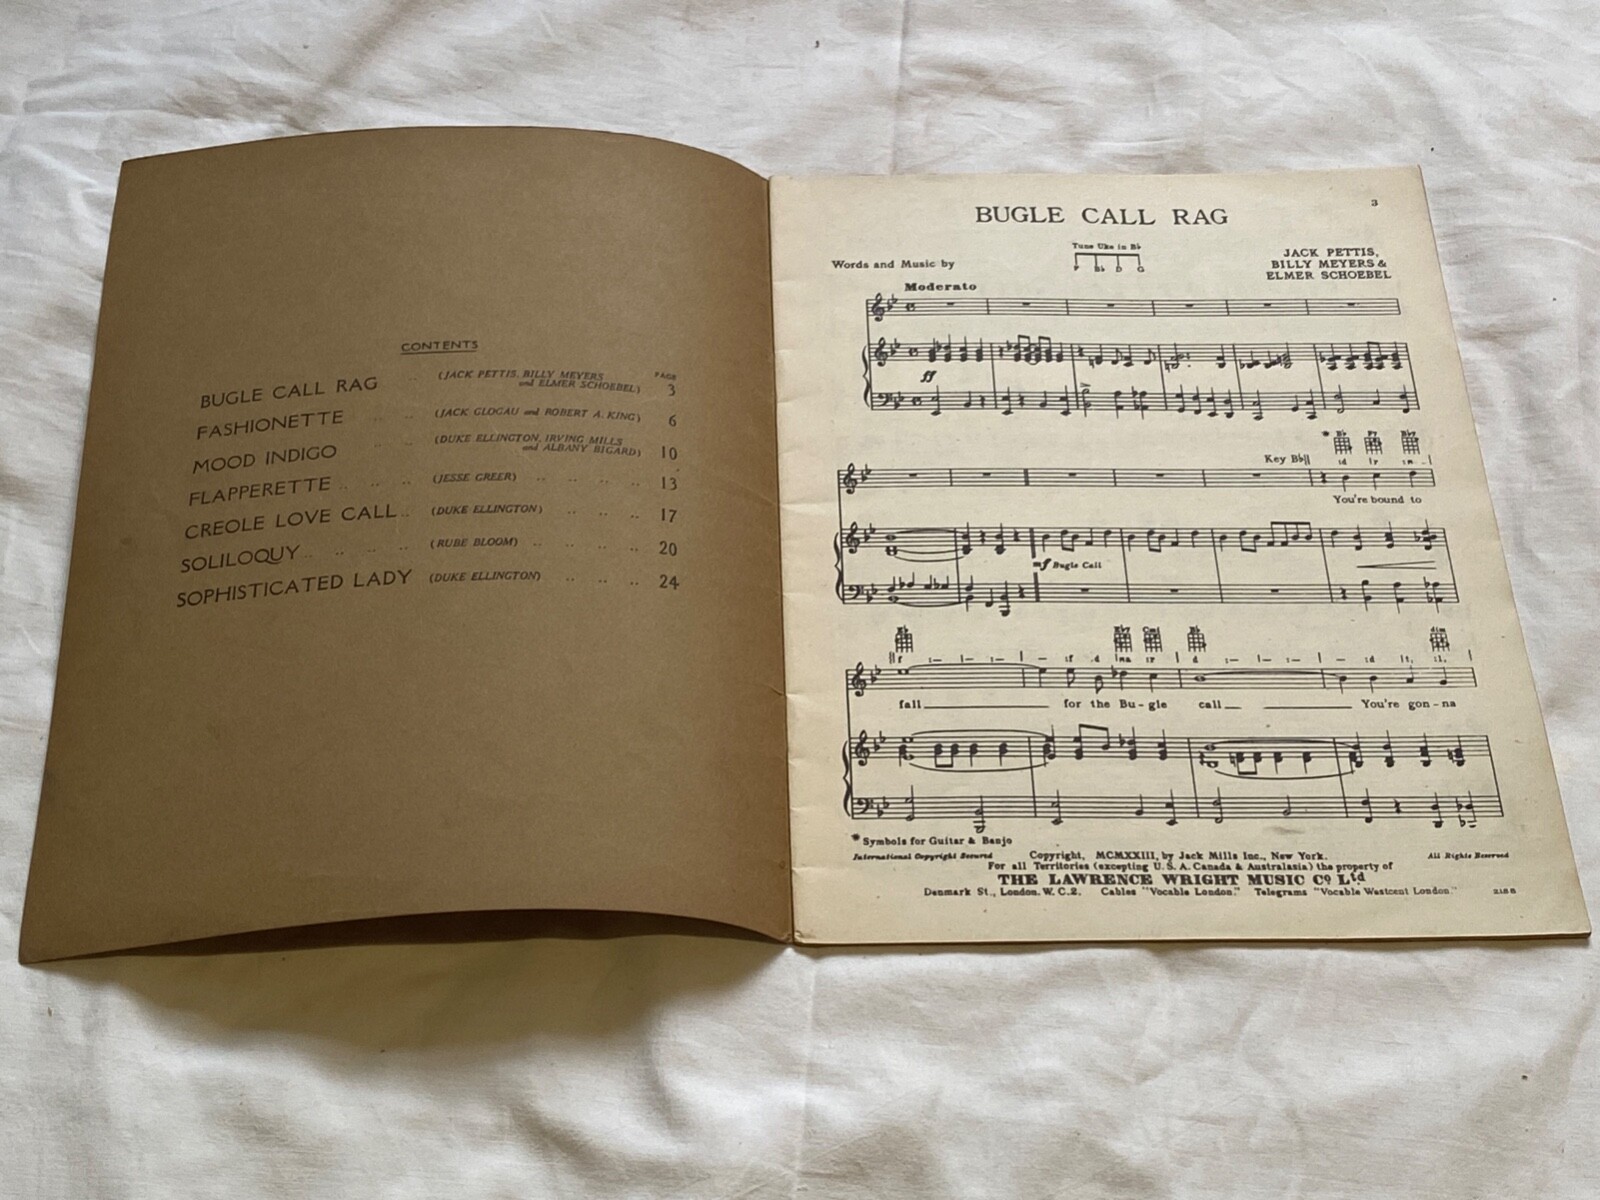 CONTENTS
PAGE
BUGLE CALL RAG .. (JACK PETTIS, BILLY MEYERS and ELMER SCHOEBEL) 3
FASHIONETTE .. .. (JACK GLOGAU and ROBERT A. KING) 6
MOOD INDIGO .. .. (DUKE ELLINGTON, IRVING MILLS and ALBANY BIGARD) 10
FLAPPERETTE .. .. .. (JESSE GREER) .. .. .. .. 13
CREOLE LOVE CALL .. (DUKE ELLINGTON) .. .. .. 17
SOLILOQUY .. .. .. .. (RUBE BLOOM) .. .. .. .. 20
SOPHISTICATED LADY (DUKE ELLINGTON) .. .. .. 24
3
BUGLE CALL RAG
Tune Uke in B♭
F B♭ D G
Words and Music by
JACK PETTIS,
BILLY MEYERS &
ELMER SCHOEBEL
Moderato
ff
Key B♭
You're bound to
mf Bugle Call
fall for the Bu-gle call You're gon-na
* Symbols for Guitar & Banjo
International Copyright Secured
Copyright, MCMXXIII, by Jack Mills Inc., New York.
All Rights Reserved
For all Territories (excepting U.S.A. Canada & Australasia) the property of
THE LAWRENCE WRIGHT MUSIC Co Ltd
Denmark St., London. W.C.2. Cables "Vocable London." Telegrams "Vocable Westcent London."